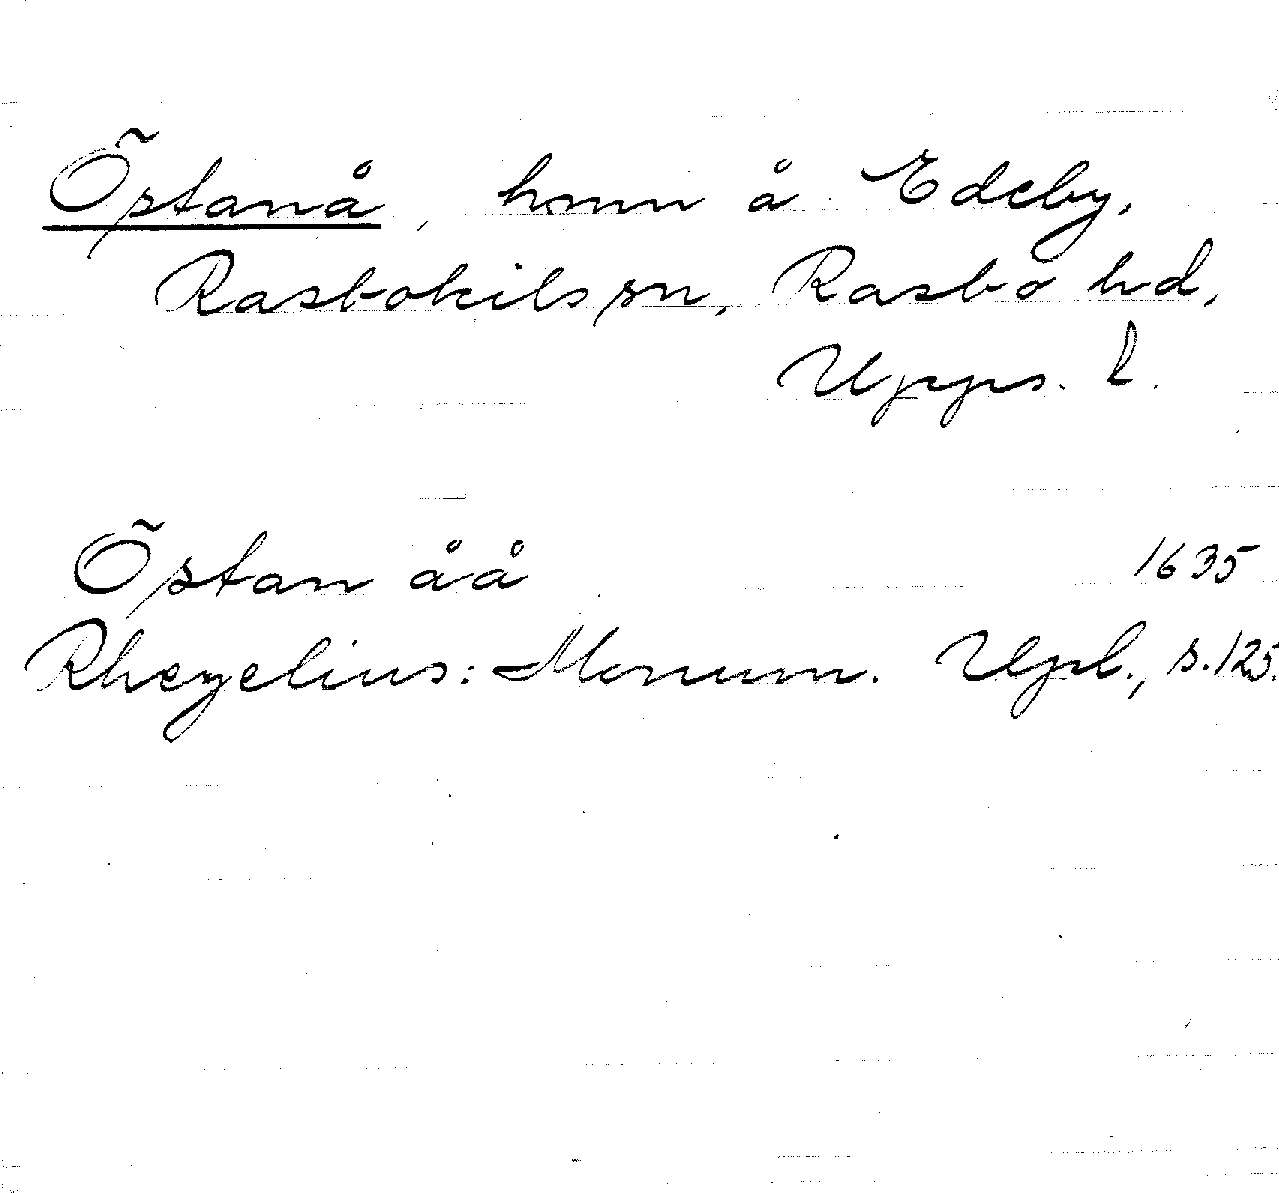 Östanå, hmn å Edeby,
Rasbokils sn, Rasbo hd,
Upps. l.
Östan åå 1635
Rhezelius: Monum. Upl., s. 125.